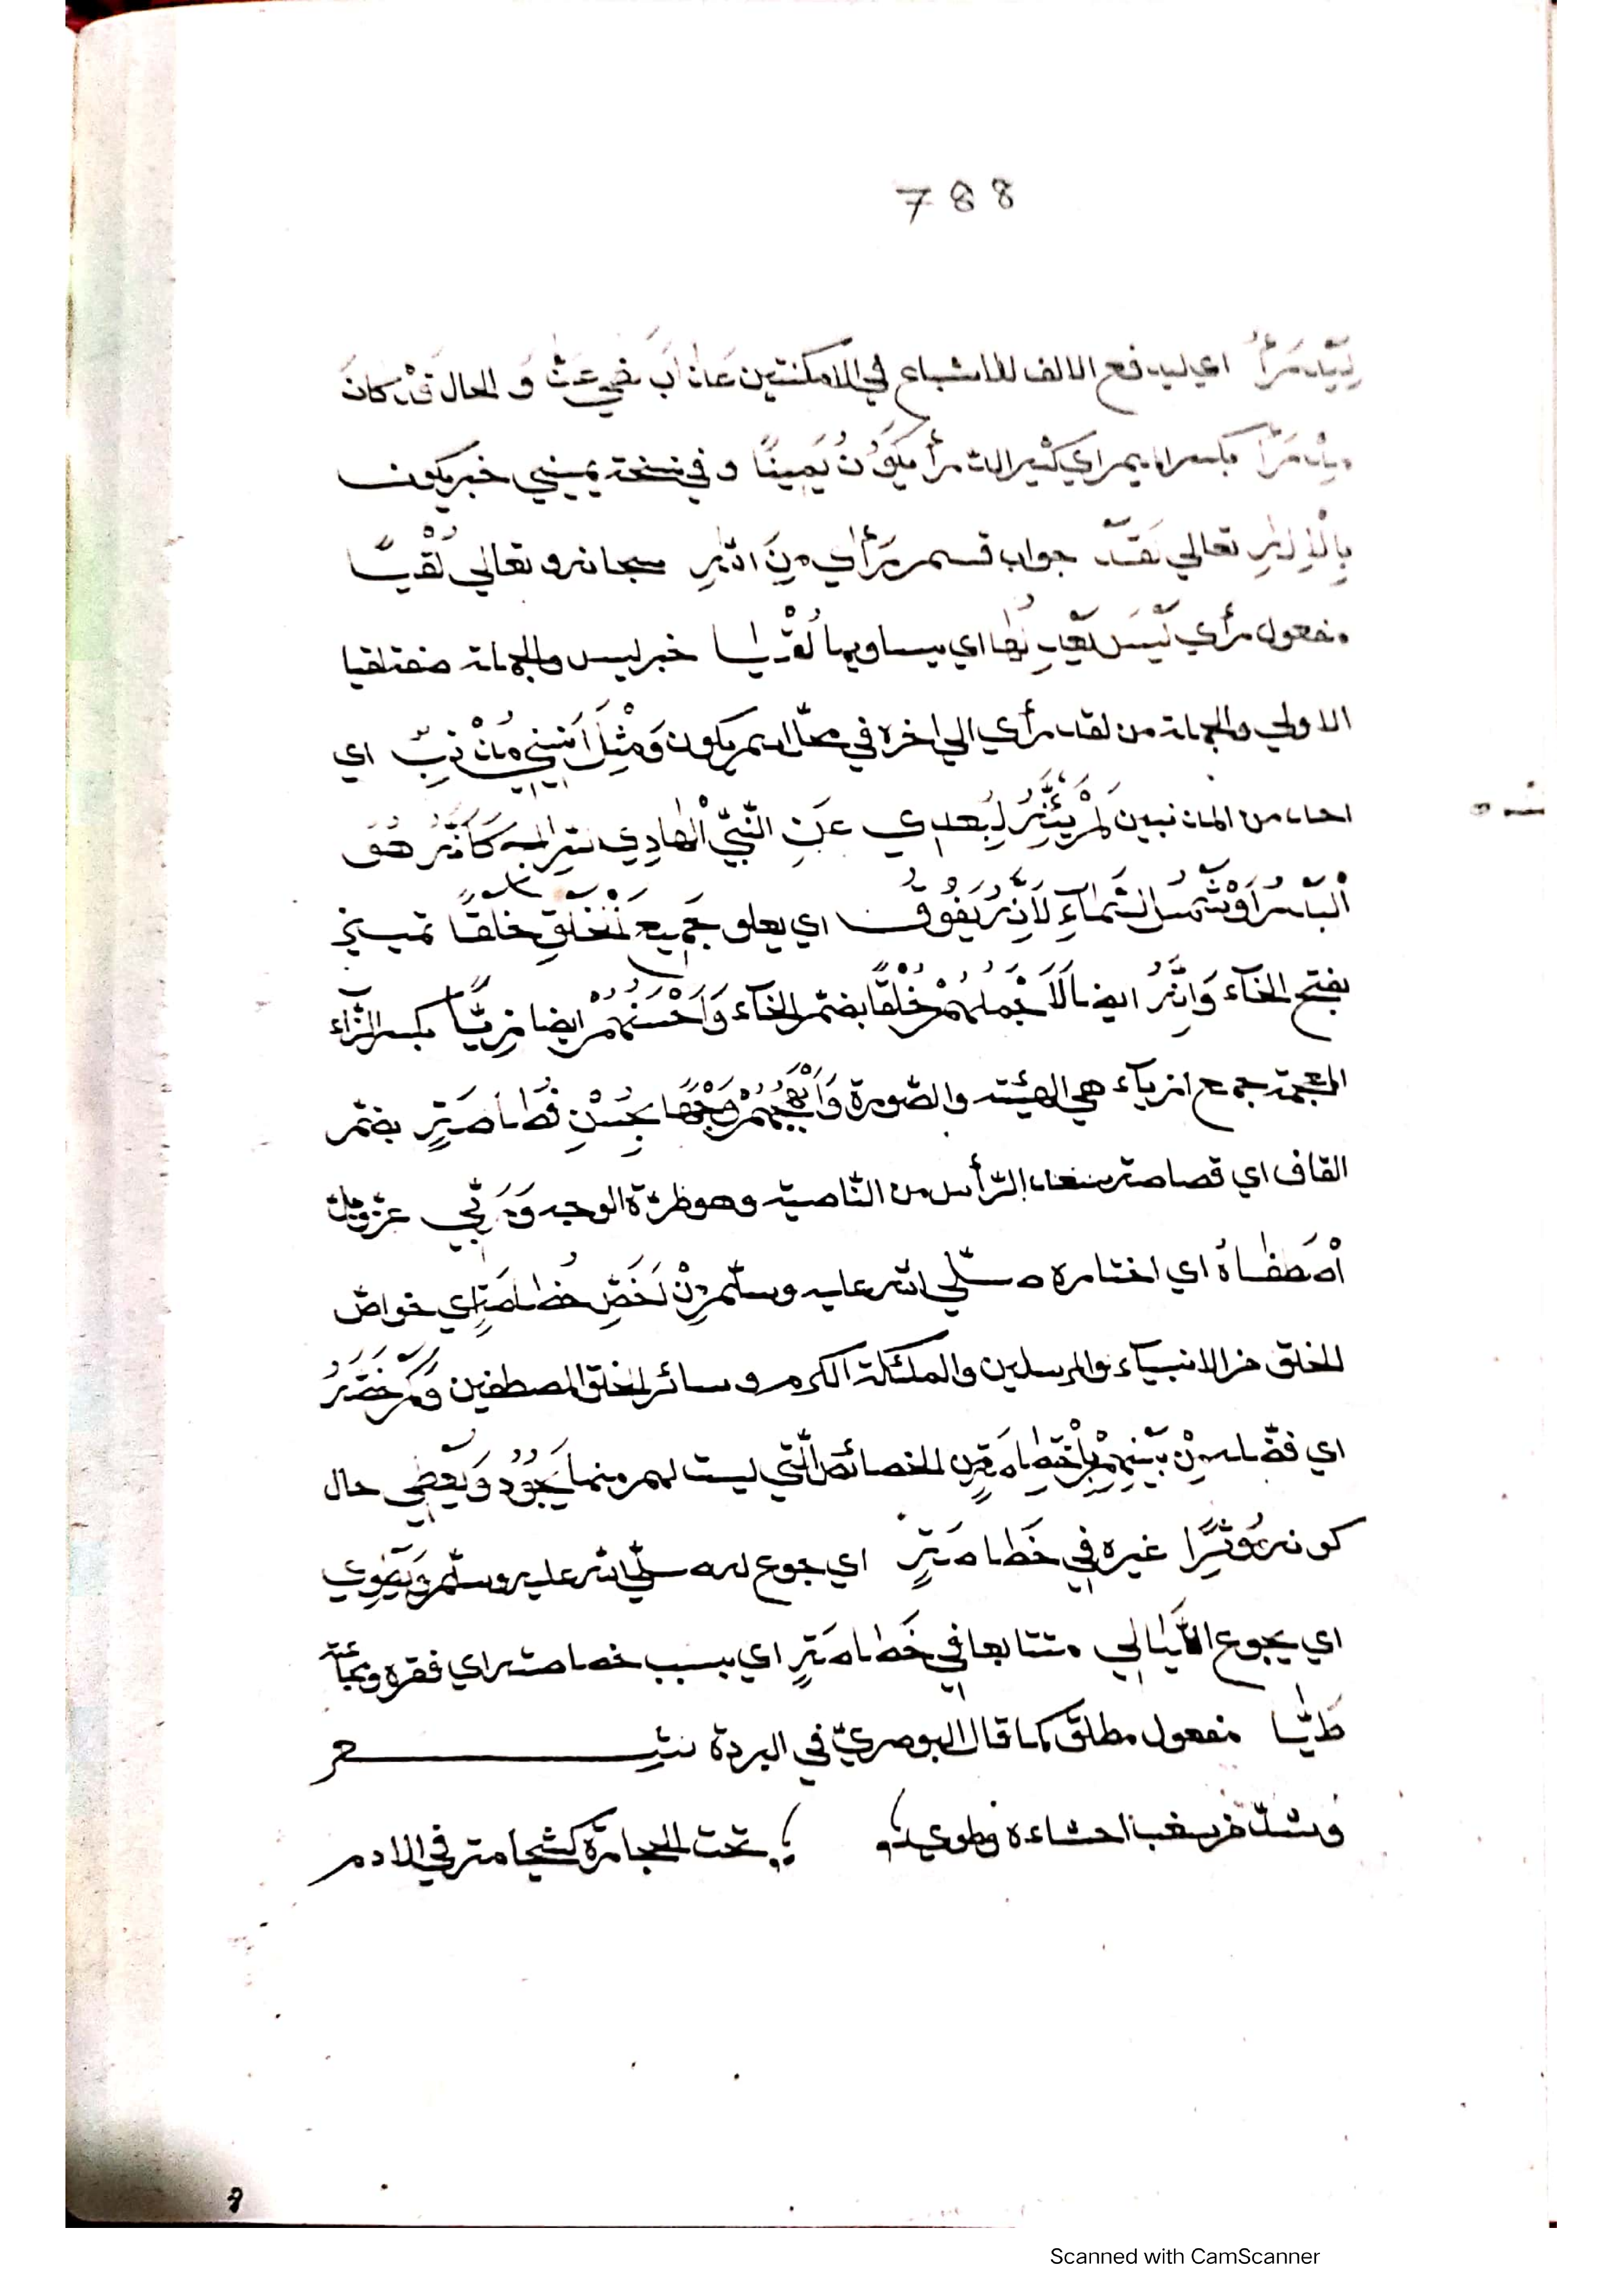 788
لِيَدْرَأَ اي ليدفع الالف للاشباع في الامكنتين عَذَابَ ضِيْ عَثَ وَ الحال قَدْ كَانَ
مِدْرَأَ بكسر الميم اي كثير الدرأ يَكُوْنُ يَمِينًا و في نسخة يميني خبر يكون
بِاللهِ تعالي لَقَدْ جواب قسم رَأَي مِنَ اللهِ سبحانه و تعالي لُقْيًا
مفعول رأي لَيْسَ يَعْدِلُهَا اي يساويها لُقْيَا خبر ليس والجملة صفة لقيا
الاولي والجملة من لقد رأي الي اخره في محل اسم يكون وَمِثْلَ أَنِيْنِيْ مُذْنِبٌ اي
احد من المذنبين لَمْ يَئِنَّ لِبُعْدِي عَنِ النَّبِيِّ الْهَادِي كَأَنَّهُ هُوَ
اَلْبَدْرُ اَوْ شَمْسُ السَّمَاءِ لِاَنَّهُ يَفُوْقُ اي يعلو جَمِيعَ الْخَلْقِ خَلْقًا تمييز
بفتح الخآء وَاِنَّهُ ايضا لَاَجْمَلُهُمْ خُلْقًا بضم الخآء وَاَحْسَنُهُمْ ايضا زِيًّا بكسر الزّاء
المعجمة جمع ازياء هي الهيئة والصّورة وَاَبْهَجُهُمْ وَجْهًا بِحُسْنِ قُصَاصَةٍ بضم
القاف اي قصاصة شعر الرّأس من الناصية وهو طرة الوجه وَرَبِّي عزّ وجل
اَصْطَفَاهُ اي اختاره صلّي الله عليه وسلّم مِنْ اَخَصِّ خُصَاصَةٍ اي خواصّ
الخلق من الانبياء والمرسلين والملئكة الكرم و سائر الخلق المصطفين وَكَمْ خَصَّهُ
اي فضّله مِنْ بَيْنِهِمْ بِاخْتِصَاصَةٍ من الخصائص الّتي ليست لهم منها يَجُوْدُ وَيُعْطِي حال
كونه مُؤْثِرًا غيره فِي خَصَاصَةٍ اي جوع له صلّي الله عليه وسلّم وَيَطْوِي
اي يجوع اللَّيَالِي متتابعا فِي خَصَاصَةٍ اي بسبب خصاصته اي فقره ومجاعته
طَيًّا مفعول مطلق كما قال البوصريّ في البردة شعر
وشدّ من سغب احشاءه وطوي تحت الحجارة كشحا مترف الادم
Scanned with CamScanner